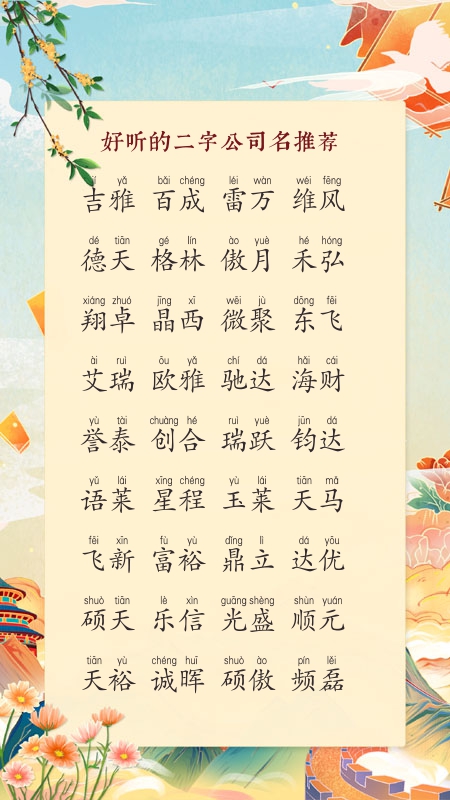 好听的二字公司名推荐
yǎ bǎi chéng léi wàn wéi fēng
吉雅 百成 雷万 维风
dé tiān gé lín ào yuè hé hóng
德天 格林 傲月 禾弘
xiáng zhuó jīng xī wēi jù dōng fēi
翔卓 晶西 微聚 东飞
ài ruì ōu yǎ chí dá hǎi cái
艾瑞 欧雅 驰达 海财
yù tài chuàng hé ruì yuè jūn dá
誉泰 创合 瑞跃 钧达
yǔ lái xīng chéng yù lái tiān mǎ
语莱 星程 玉莱 天马
fēi xīn fù yù dǐng lì dá yōu
飞新 富裕 鼎立 达优
shuò tiān lè xìn guāng shèng shùn yuán
硕天 乐信 光盛 顺元
tiān yù chéng huī shuò ào pín lěi
天裕 诚晖 硕傲 频磊